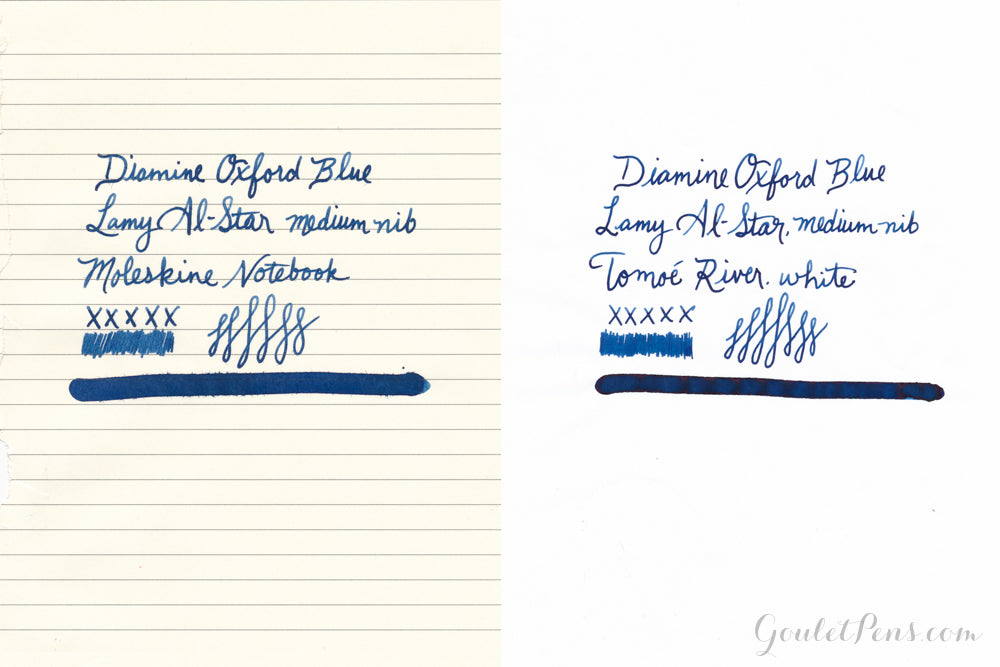 Diamine Oxford Blue
Lamy Al-Star medium nib
Moleskine Notebook
XXXXX
Diamine Oxford Blue
Lamy Al-Star, medium nib
Tomoé River, white
XXXXX
GouletPens.com